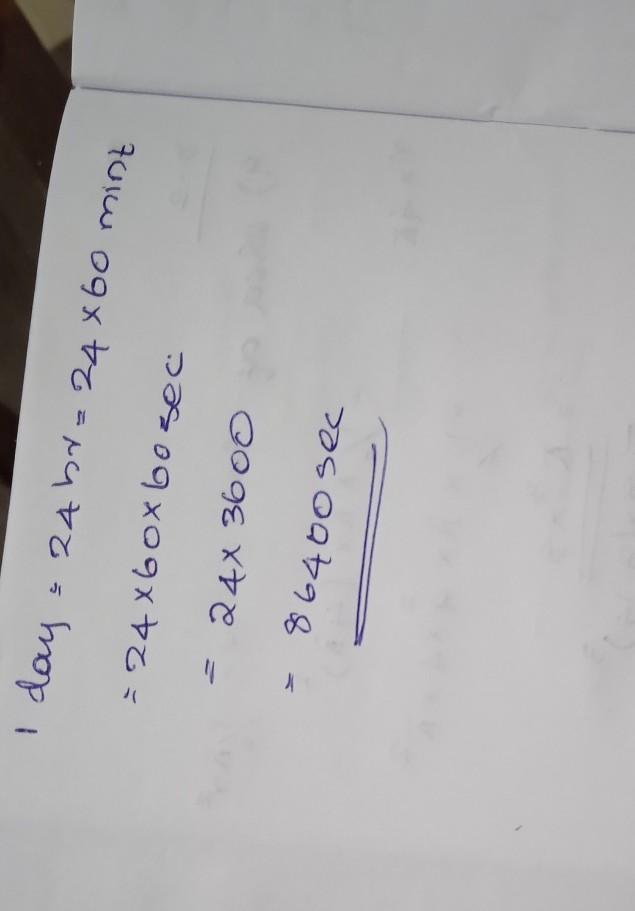 1 day = 24 hr = 24 x 60 mint
= 24 x 60 x 60 sec
= 24 x 3600
= 86400 sec